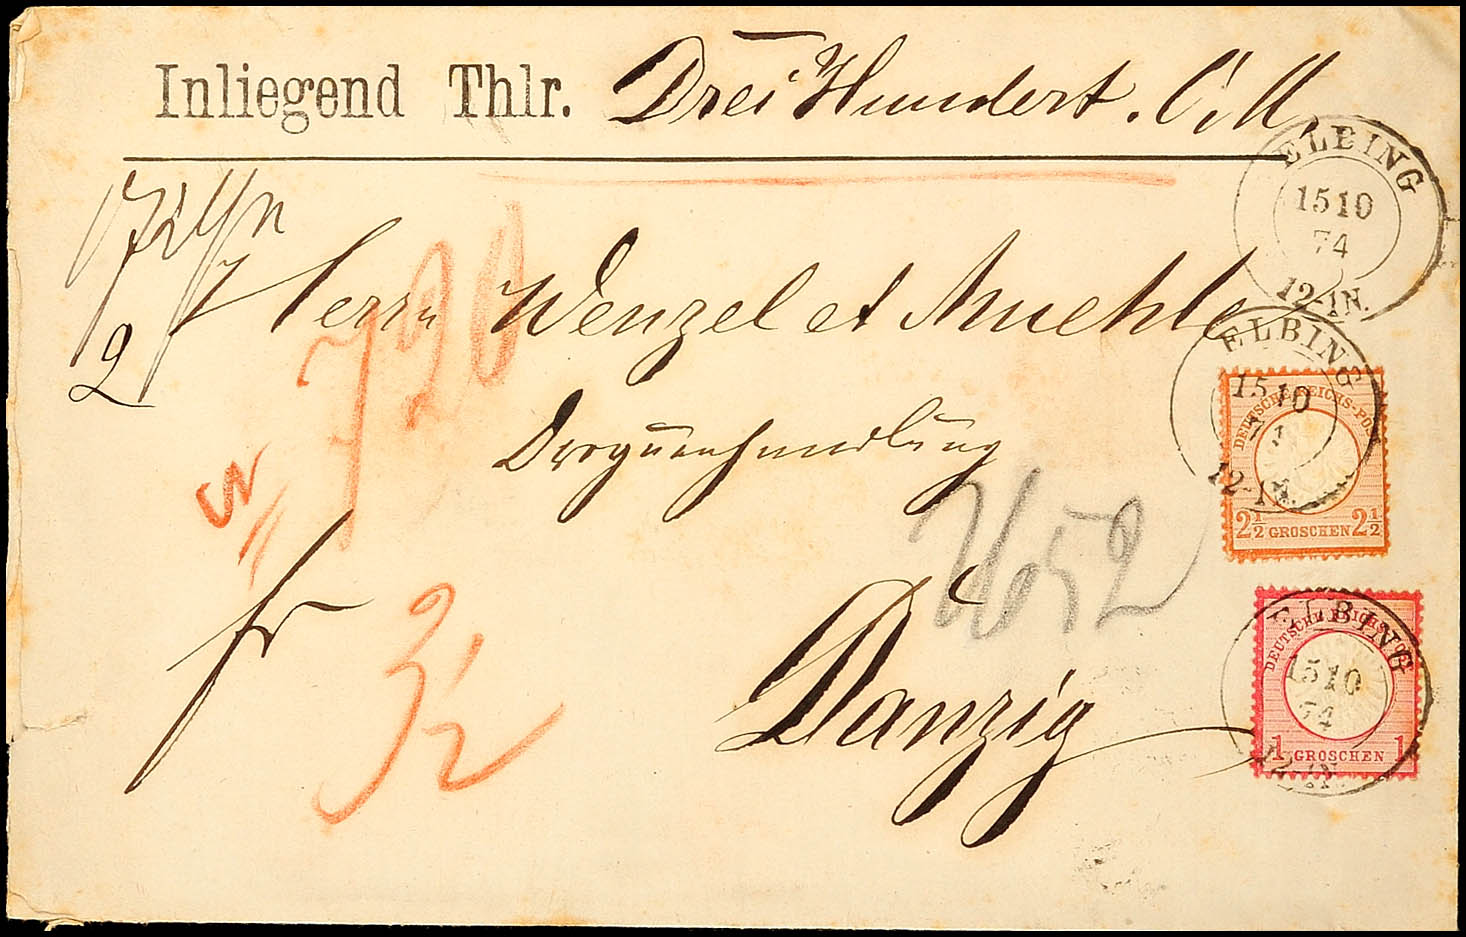 Inliegend Thlr. Drei Hundert. C. M.
ELBING
15 10
74
12-1N.
Herrn Wenzel et Muehle
ELBING
15 10
12-1
DEUTSCHE REICHS-POST
2½ GROSCHEN 2½
2
720
Droguenhandlung
fr
3½
Danzig
ELBING
15 10
74
12-1N.
DEUTSCHE REICHS-POST
1 GROSCHEN 1